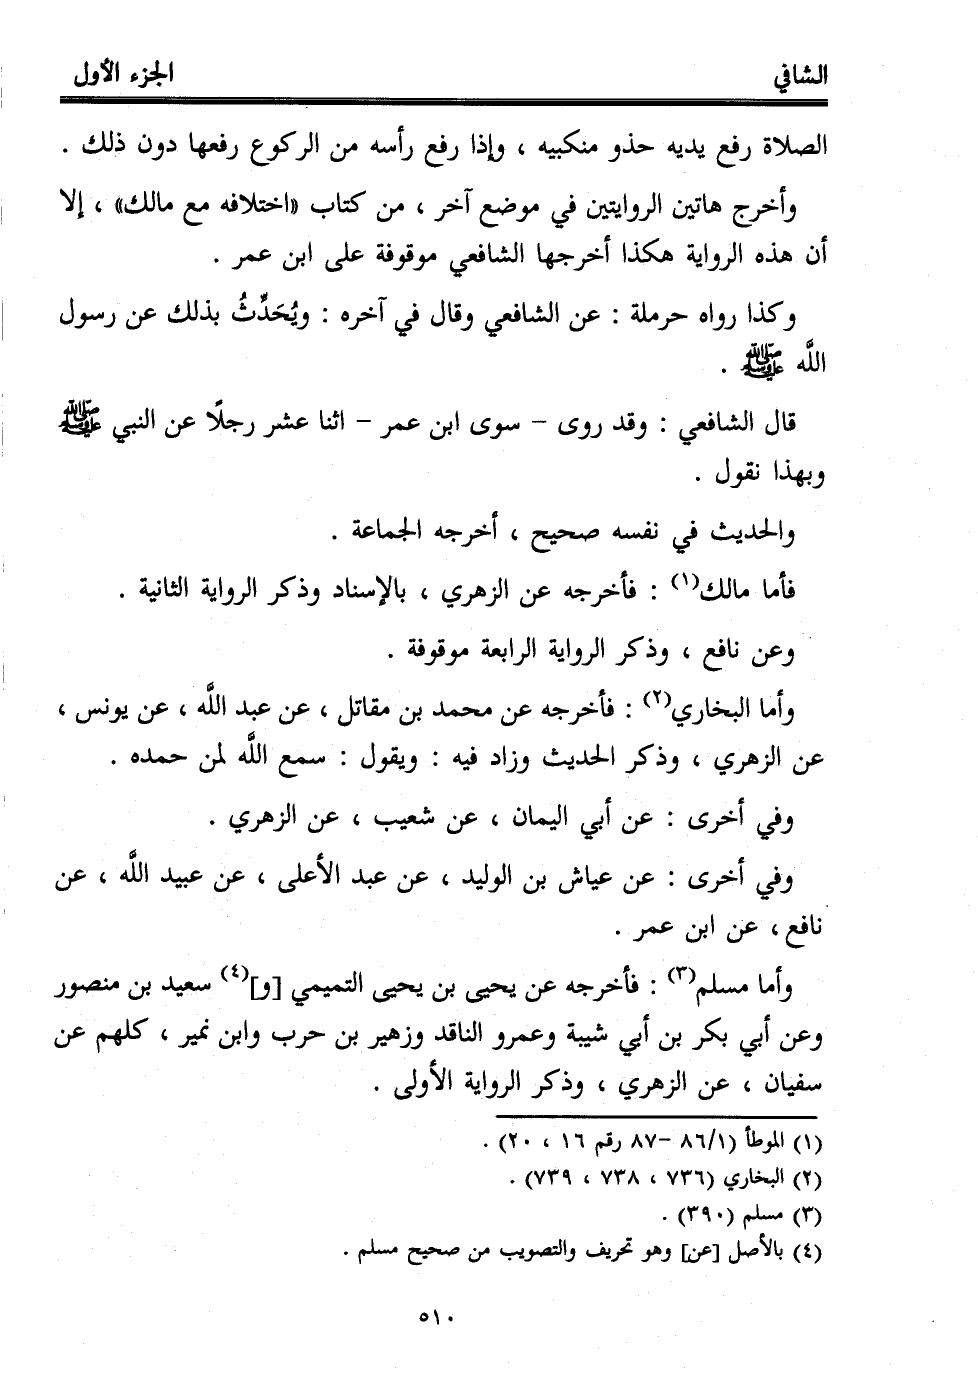 الشافي
الجزء الأول
الصلاة رفع يديه حذو منكبيه ، وإذا رفع رأسه من الركوع رفعها دون ذلك .
وأخرج هاتين الروايتين في موضع آخر ، من كتاب «اختلافه مع مالك» ، إلا
أن هذه الرواية هكذا أخرجها الشافعي موقوفة على ابن عمر .
وكذا رواه حرملة : عن الشافعي وقال في آخره : ويُحَدِّثُ بذلك عن رسول
اللَّه ﷺ .
قال الشافعي : وقد روى – سوى ابن عمر – اثنا عشر رجلًا عن النبي ﷺ
وبهذا نقول .
والحديث في نفسه صحيح ، أخرجه الجماعة .
فأما مالك(١) : فأخرجه عن الزهري ، بالإسناد وذكر الرواية الثانية .
وعن نافع ، وذكر الرواية الرابعة موقوفة .
وأما البخاري(٢) : فأخرجه عن محمد بن مقاتل ، عن عبد اللَّه ، عن يونس ،
عن الزهري ، وذكر الحديث وزاد فيه : ويقول : سمع اللَّه لمن حمده .
وفي أخرى : عن أبي اليمان ، عن شعيب ، عن الزهري .
وفي أخرى : عن عياش بن الوليد ، عن عبد الأعلى ، عن عبيد اللَّه ، عن
نافع ، عن ابن عمر .
وأما مسلم(٣) : فأخرجه عن يحيى بن يحيى التميمي [و](٤) سعيد بن منصور
وعن أبي بكر بن أبي شيبة وعمرو الناقد وزهير بن حرب وابن نمير ، كلهم عن
سفيان ، عن الزهري ، وذكر الرواية الأولى .
(١) الموطأ (٨٦/١ –٨٧ رقم ١٦ ، ٢٠) .
(٢) البخاري (٧٣٦ ، ٧٣٨ ، ٧٣٩) .
(٣) مسلم (٣٩٠) .
(٤) بالأصل [عن] وهو تحريف والتصويب من صحيح مسلم .
٥١٠